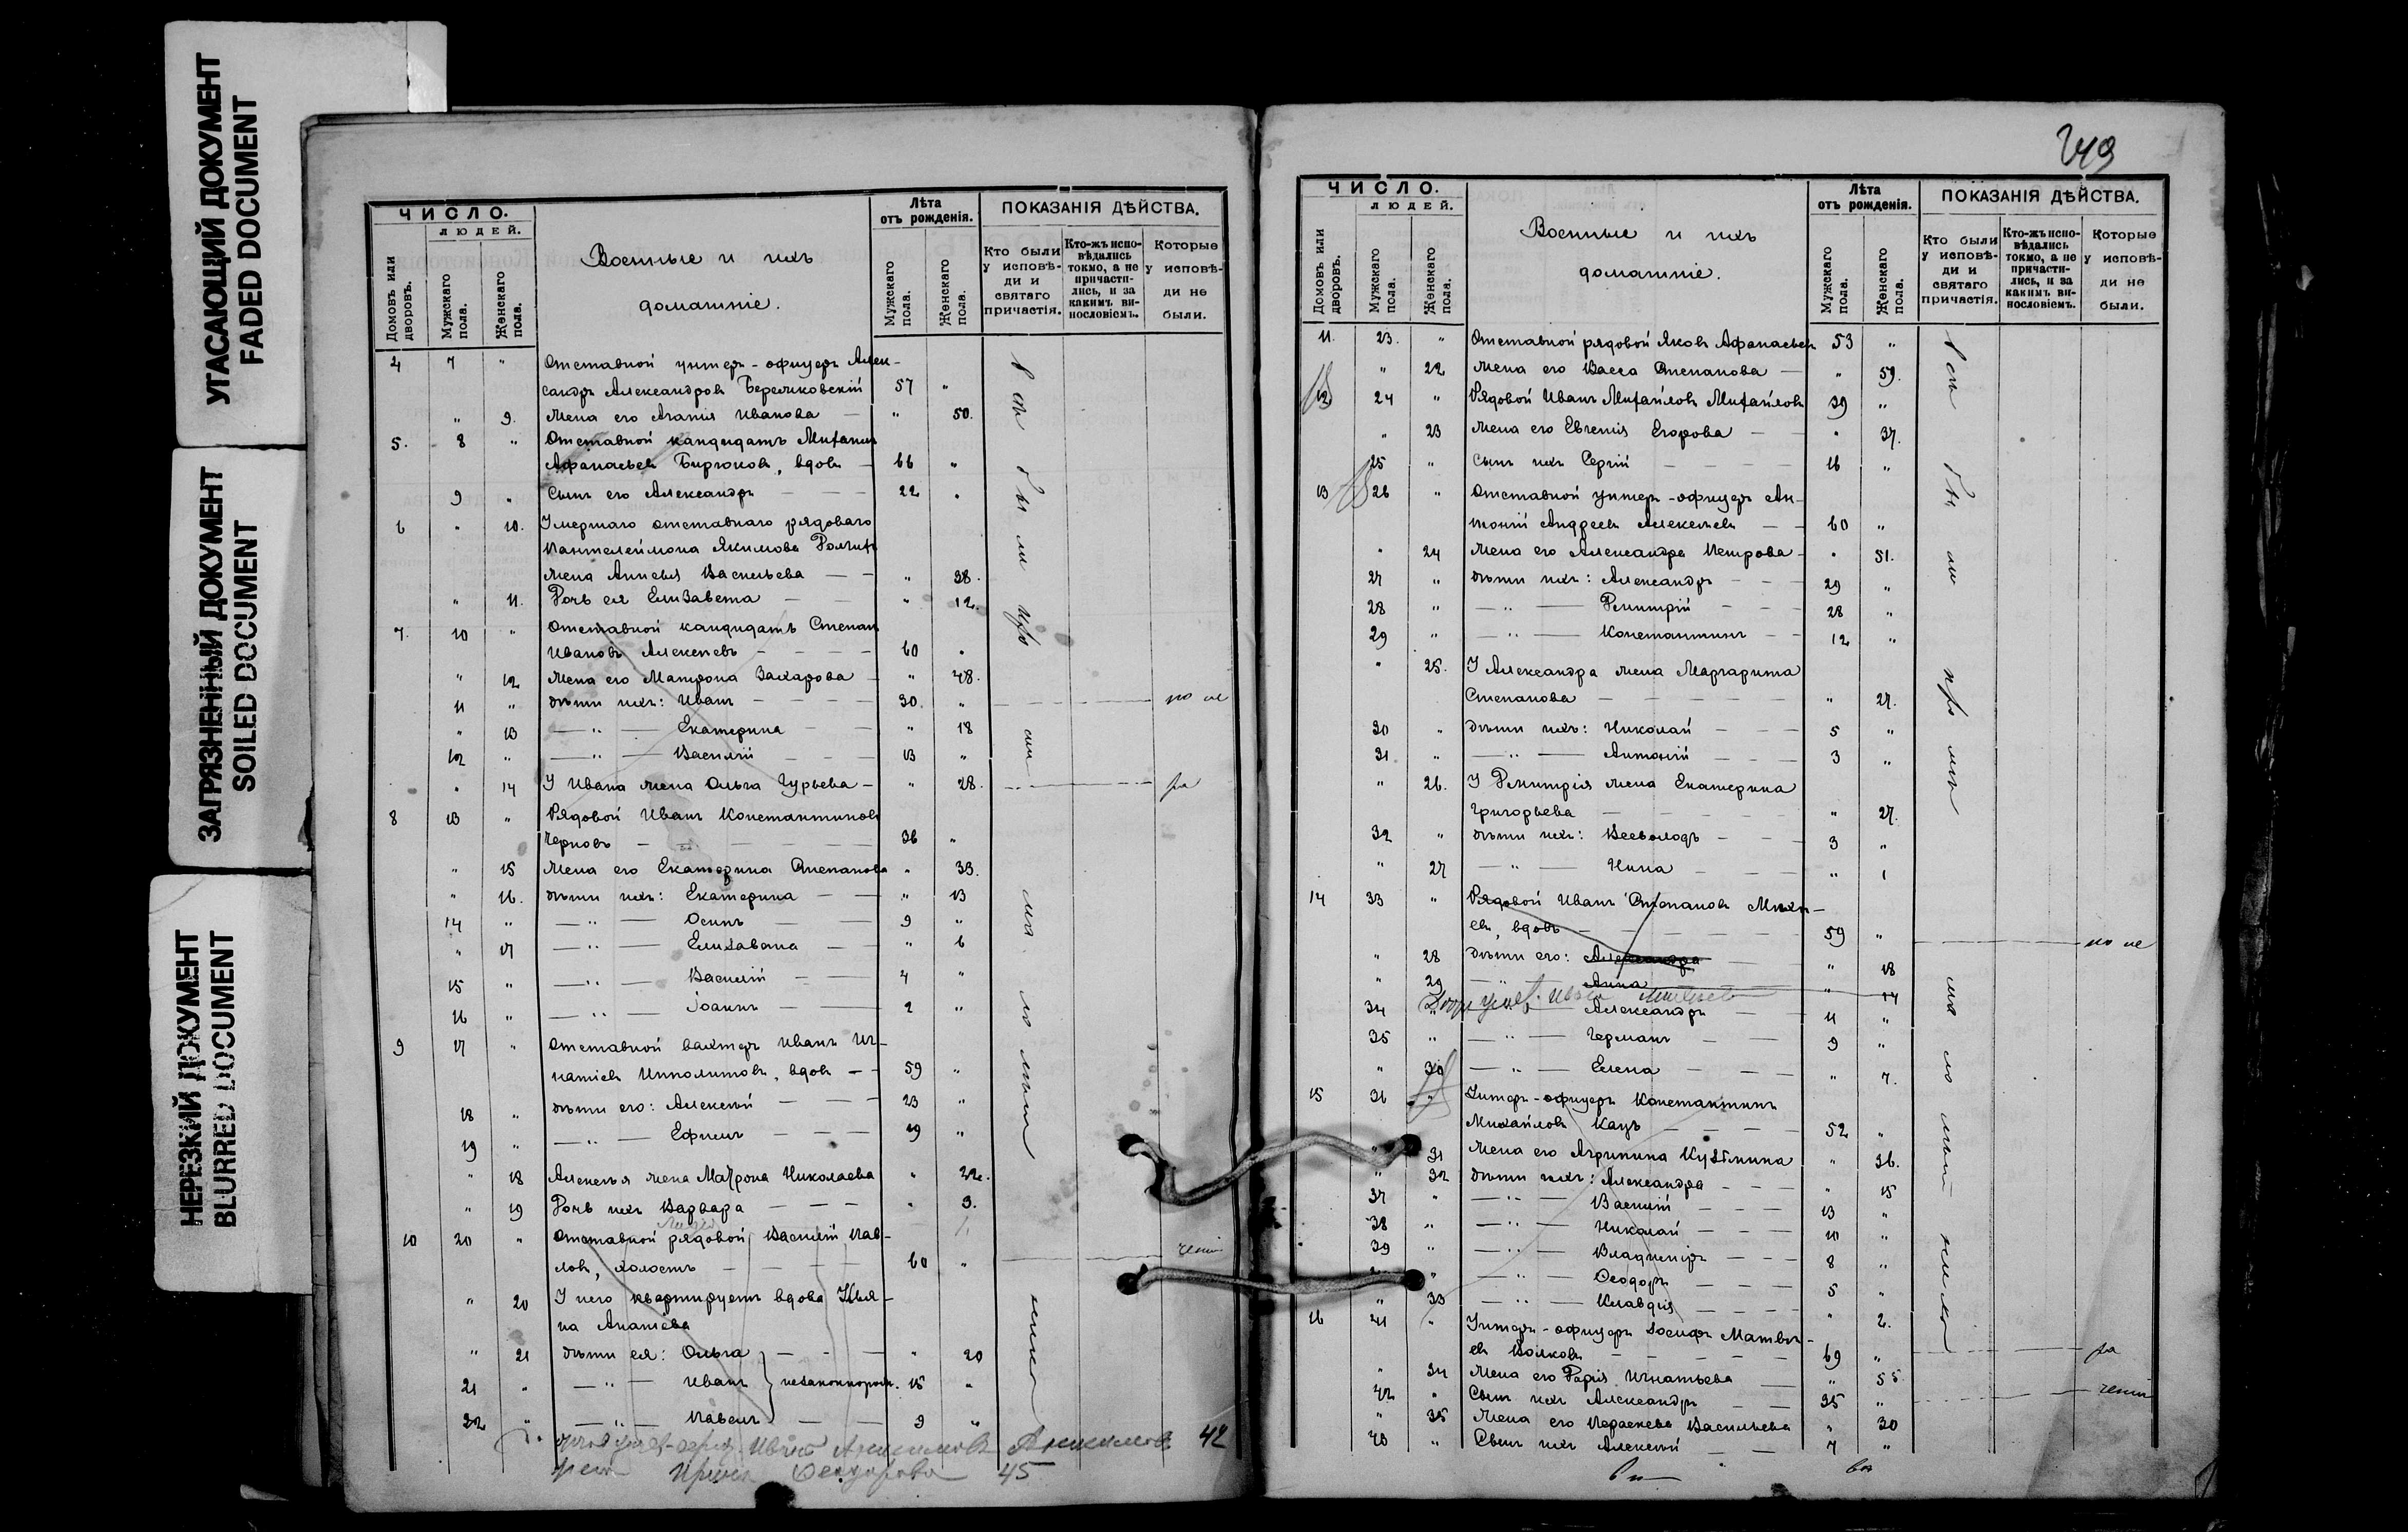 УГАСАЮЩИЙ ДОКУМЕНТ
FADED DOCUMENT
ЗАГРЯЗНЕННЫЙ ДОКУМЕНТ
SOILED DOCUMENT
НЕРЕЗКИЙ ДОКУМЕНТ
BLURRED DOCUMENT
ЧИСЛО.
ЛЮДЕЙ.
Домовъ или дворовъ.
Мужскаго пола.
Женскаго пола.
Военные и ихъ
домашніе.
Лѣта
отъ рожденія.
Мужскаго пола.
Женскаго пола.
ПОКАЗАНІЯ ДѢЙСТВА.
Кто были у исповѣ-ди и святаго причастія.
Кто-жъ испо-вѣдались токмо, а не причасти-лись, и за какимъ ви-нословіемъ.
Которые у исповѣ-ди не были.
4 7 " Отставной унтеръ-офицеръ Алек-
сандръ Александровъ 57 "
" 9. Жена его Агапія Иванова — " 50.
5. 8 " Отставной кандидатъ
Афанасьевъ Бирюковъ, вдовъ — 66 "
9 " Сынъ его Александръ — — — 22 "
6 " 10. Умершаго отставнаго рядоваго
Пантелеймона Якимова
жена Васильева — — " 38.
" 11. Дочь ея Елизавета — — " 12.
7. 10 " Отставной кандидатъ Степанъ
Ивановъ Алексѣевъ — — — — 60 "
" 12 Жена его Матрона Захарова — " 48.
11 " Дѣти ихъ: Иванъ — — — — 30. " по не
" 13 — " — Екатерина — — " 18
12 " — " — Василій — — — 13 "
" 14 У Ивана жена Ольга Гурьева — " 28. ра
8 13 " Рядовой Иванъ Константиновъ
Черновъ — — — — — 36 "
" 15 Жена его Екатерина Степанова " 33.
" 16. Дѣти ихъ: Екатерина — — " 13
14 " — " — Осипъ — — 9 "
" 17 — " — Елизавета — — " 6
15 " — " — Василій — — 4 "
16 " — " — Іоаннъ — — 2 "
9 17 " Отставной вахтеръ Иванъ Иг-
натіевъ Ипполитовъ, вдовъ — — 59 "
18 " Дѣти его: Алексѣй — — — 23 "
19 " — " — Ефимъ — — — 19 "
" 18 Алексѣя жена Матрона Николаева " 22.
" 19 Дочь ихъ Варвара — — — " 3.
10 20 " Отставной рядовой Василій Пав-
ловъ, холостъ — — — — 60 "
" 20 У него квартируетъ вдова
на
" 21 Дѣти ея: Ольга — — — " 20
21 " — " — Иванъ незаконнорож. 15 "
22 " — " — Павелъ — — 9 "
42
Ирина Ѳеодорова 45
249
ЧИСЛО.
ЛЮДЕЙ.
Домовъ или дворовъ.
Мужскаго пола.
Женскаго пола.
Военные и ихъ
домашніе.
Лѣта
отъ рожденія.
Мужскаго пола.
Женскаго пола.
ПОКАЗАНІЯ ДѢЙСТВА.
Кто были у исповѣ-ди и святаго причастія.
Кто-жъ испо-вѣдались токмо, а не причасти-лись, и за какимъ ви-нословіемъ.
Которые у исповѣ-ди не были.
11. 23. " Отставной рядовой Яковъ Афанасьевъ 53 "
" 22 Жена его Васса Степанова — " 59.
12 24 " Рядовой Иванъ Михайловъ Михайловъ 39 "
" 23 Жена его Евгенія Егорова — — " 37.
25 " Сынъ ихъ Сергій — — — — 16 "
13 26 " Отставной унтеръ-офицеръ Ан-
тоній Андреевъ Алексѣевъ — — 60 "
" 24 Жена его Александра Петрова — " 51.
27 " Дѣти ихъ: Александръ — — 29 "
28 " — " — Димитрій — — 28 "
29 " — " — Константинъ — — 12 "
" 25. У Александра жена Маргарита
Степанова — — — — — " 27.
30 " Дѣти ихъ: Николай — — — 5 "
31 " — " — Антоній — — — 3 "
" 26. У Димитрія жена Екатерина
Григорьева — — — — " 27.
32 " Дѣти ихъ: Всеволодъ — — 3 "
" 27 — " — Нина — — — " 1
14 33 " Рядовой Иванъ Степановъ
евъ, вдовъ — — — — — 59 " по не
" 28 Дѣти его: Александра — " 18
" 29 — " — Анна — " 14
34 " Александръ — — 11 "
35 " — " — Германъ — — 9 "
" 30 — " — Елена — — — " 7.
15 36 " Унтеръ-офицеръ Константинъ
Михайловъ Кацъ — — — — 52 "
" 31 Жена его Агрипина Кузьмина " 36.
" 32 Дѣти ихъ: Александра — — — " 15
37 " — " — Василій — — — 13 "
38 " — " — Николай — — — 10 "
39 " — " — Владиміръ — — 8 "
" — " — Ѳеодоръ — — — 5 "
" 33 — " — Клавдія — — — " 2.
16 41 " Унтеръ-офицеръ Іосифъ Матвѣ-
евъ Волковъ — — — — — 69 " ра
" 34 Жена его Дарія Игнатьева — " 55
42 " Сынъ ихъ Александръ — — 35 "
" 35 Жена его Параскева Васильева " 30
43 " Сынъ ихъ Алексѣй — — 7 "